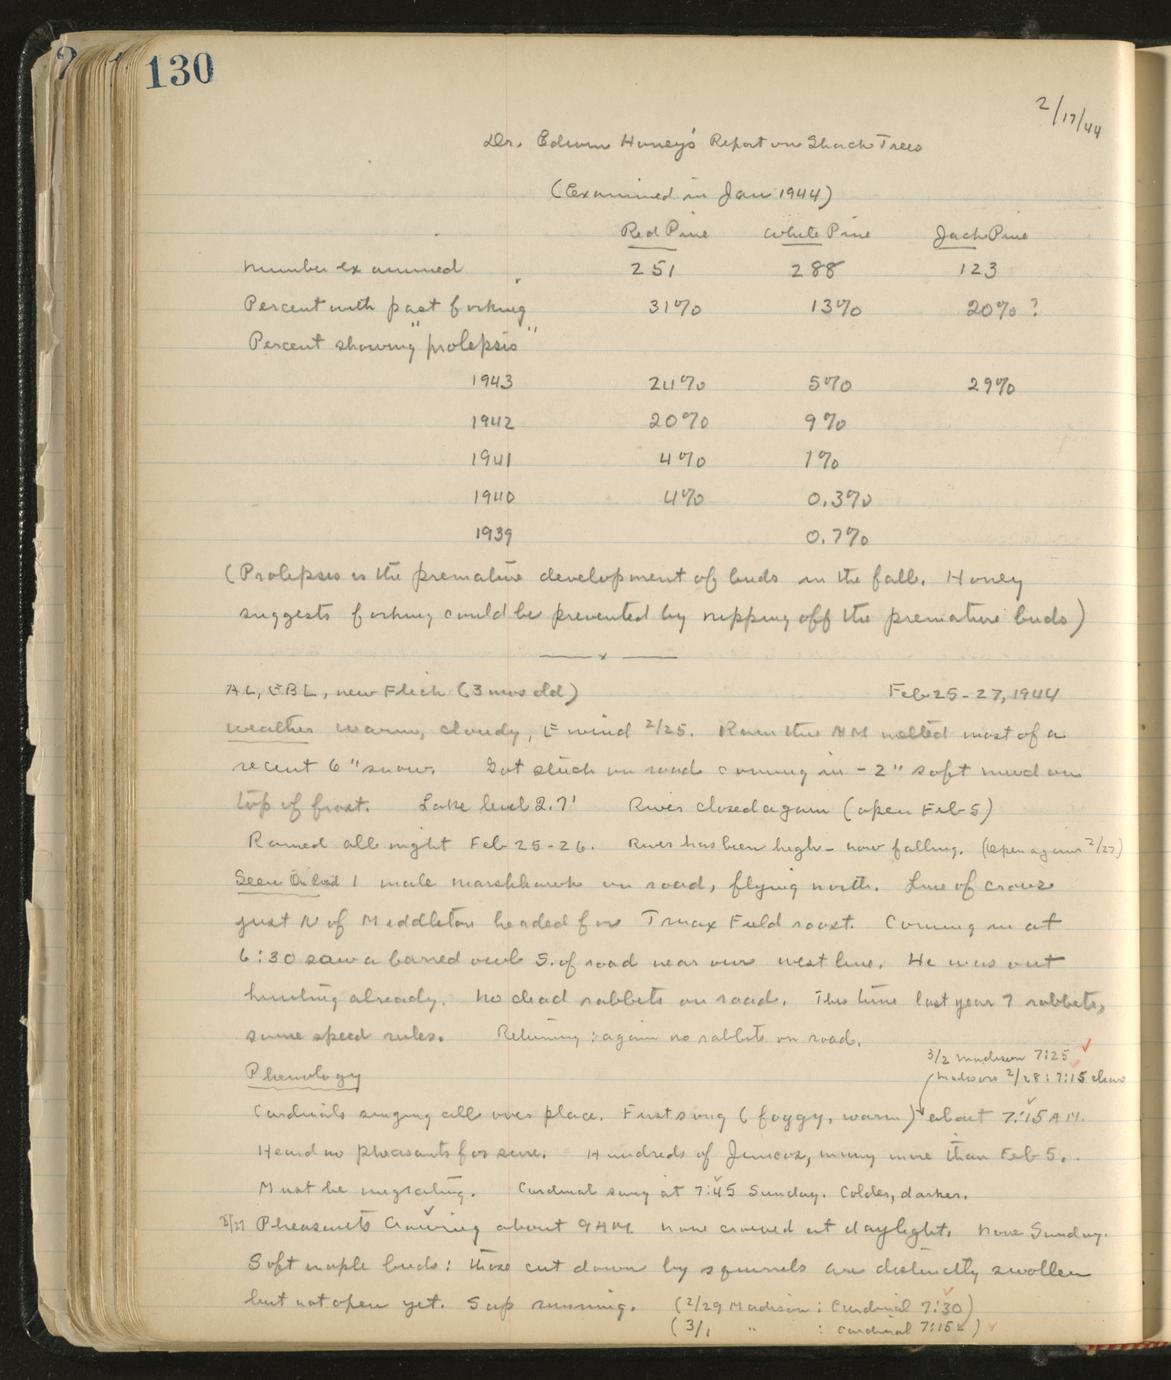 130
2/17/44
Dr. Edwin Honey's Report on Shack Trees
(Examined in Jan 1944)
Red Pine White Pine Jack Pine
Number examined 251 288 123
Percent with past forking 31% 13% 20% ?
Percent showing "prolepsis"
1943 24% 5% 29%
1942 20% 9%
1941 4% 1%
1940 4% 0.3%
1939 0.7%
(Prolepsis is the premature development of buds in the fall. Honey
suggests forking could be prevented by nipping off the premature buds)
x
AL, EBL, new Flick (3 mos old) Feb 25-27, 1944
Weather warm, cloudy, E wind 2/25. Rain this AM melted most of a
recent 6" snow. Got stuck on road coming in - 2" soft mud on
top of frost. Lake level 2.7' River closed again (open Feb 5)
Rained all night Feb 25-26. River has been high - now falling. (Open again 2/27)
Seen 1 male marshhawk on road, flying north. Line of crows
just N of Middleton headed for Truax Field roost. Coming in at
6:30 saw a barred owl S. of road near our west line. He was out
hunting already. No dead rabbits on road. This time last year 7 rabbits,
same speed rules. Returning: again no rabbits on road.
3/2 Madison 7:25
Madison 2/28: 7:15 clear
Phenology
Cardinals singing all over place. First song (foggy, warm) about 7:15 AM.
Heard no pheasants for sure. Hundreds of Juncos, many more than Feb 5.
Must be migrating. Cardinal sang at 7:45 Sunday. Colder, darker.
Pheasants Crowing about 9 AM. None crowed at daylight. None Sunday.
Soft maple buds: those cut down by squirrels are distinctly swollen
but not open yet. Sap running. (2/29 Madison: Cardinal 7:30)
(3/1 " : Cardinal 7:15)